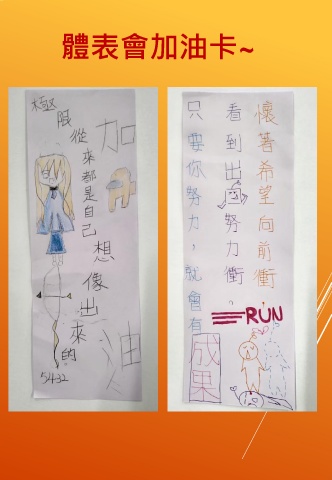 體表會加油卡~
極限從來都是自己想像出來的
加油
5432
懷著希望向前衝，
看到出口努力衝。
只要你努力，就會有
成果
RUN